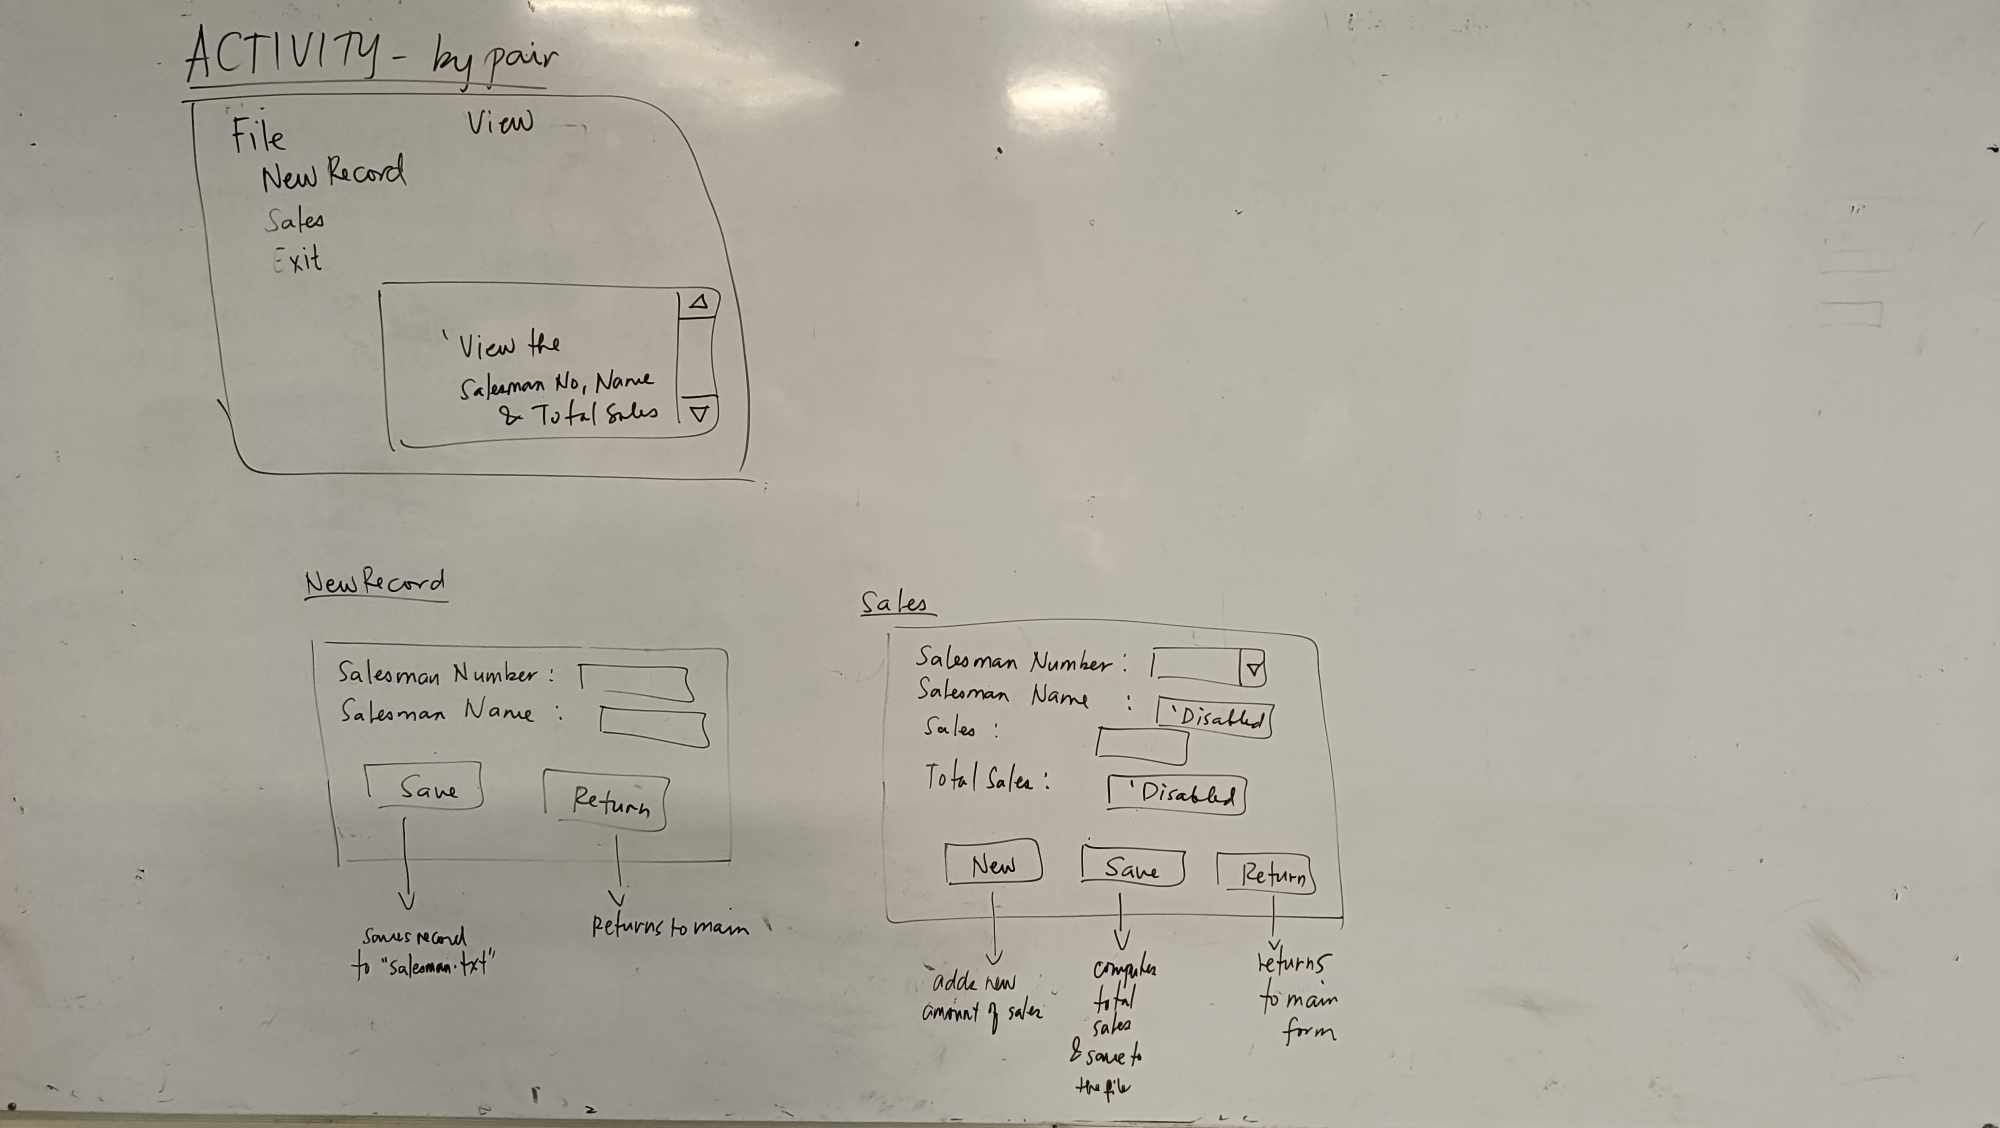 ACTIVITY - by pair
File
View
New Record
Sales
Exit
'View the
Salesman No, Name
& Total Sales
New Record
Salesman Number :
Salesman Name :
Save
Return
saves record
to "salesman.txt"
Returns to main
Sales
Salesman Number :
Salesman Name : 'Disabled
Sales :
Total Sales : 'Disabled
New
Save
Return
adds new
amount of sales
computes
total
sales
& save to
the file
returns
to main
form